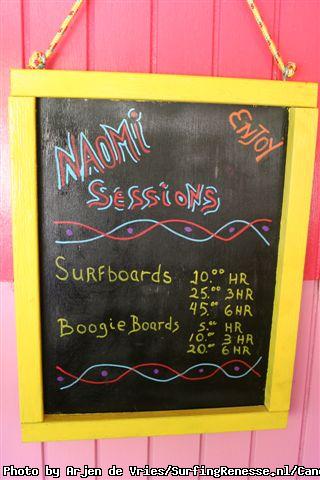 NAOMI
ENJOY
SESSIONS
SURFboards 10.00 HR
25.00 3HR
45.00 6HR
Boogie Boards 5.00 HR
10.00 3 HR
20.00 6 HR
Photo by Arjen de Vries/SurfingRenesse.nl/Can